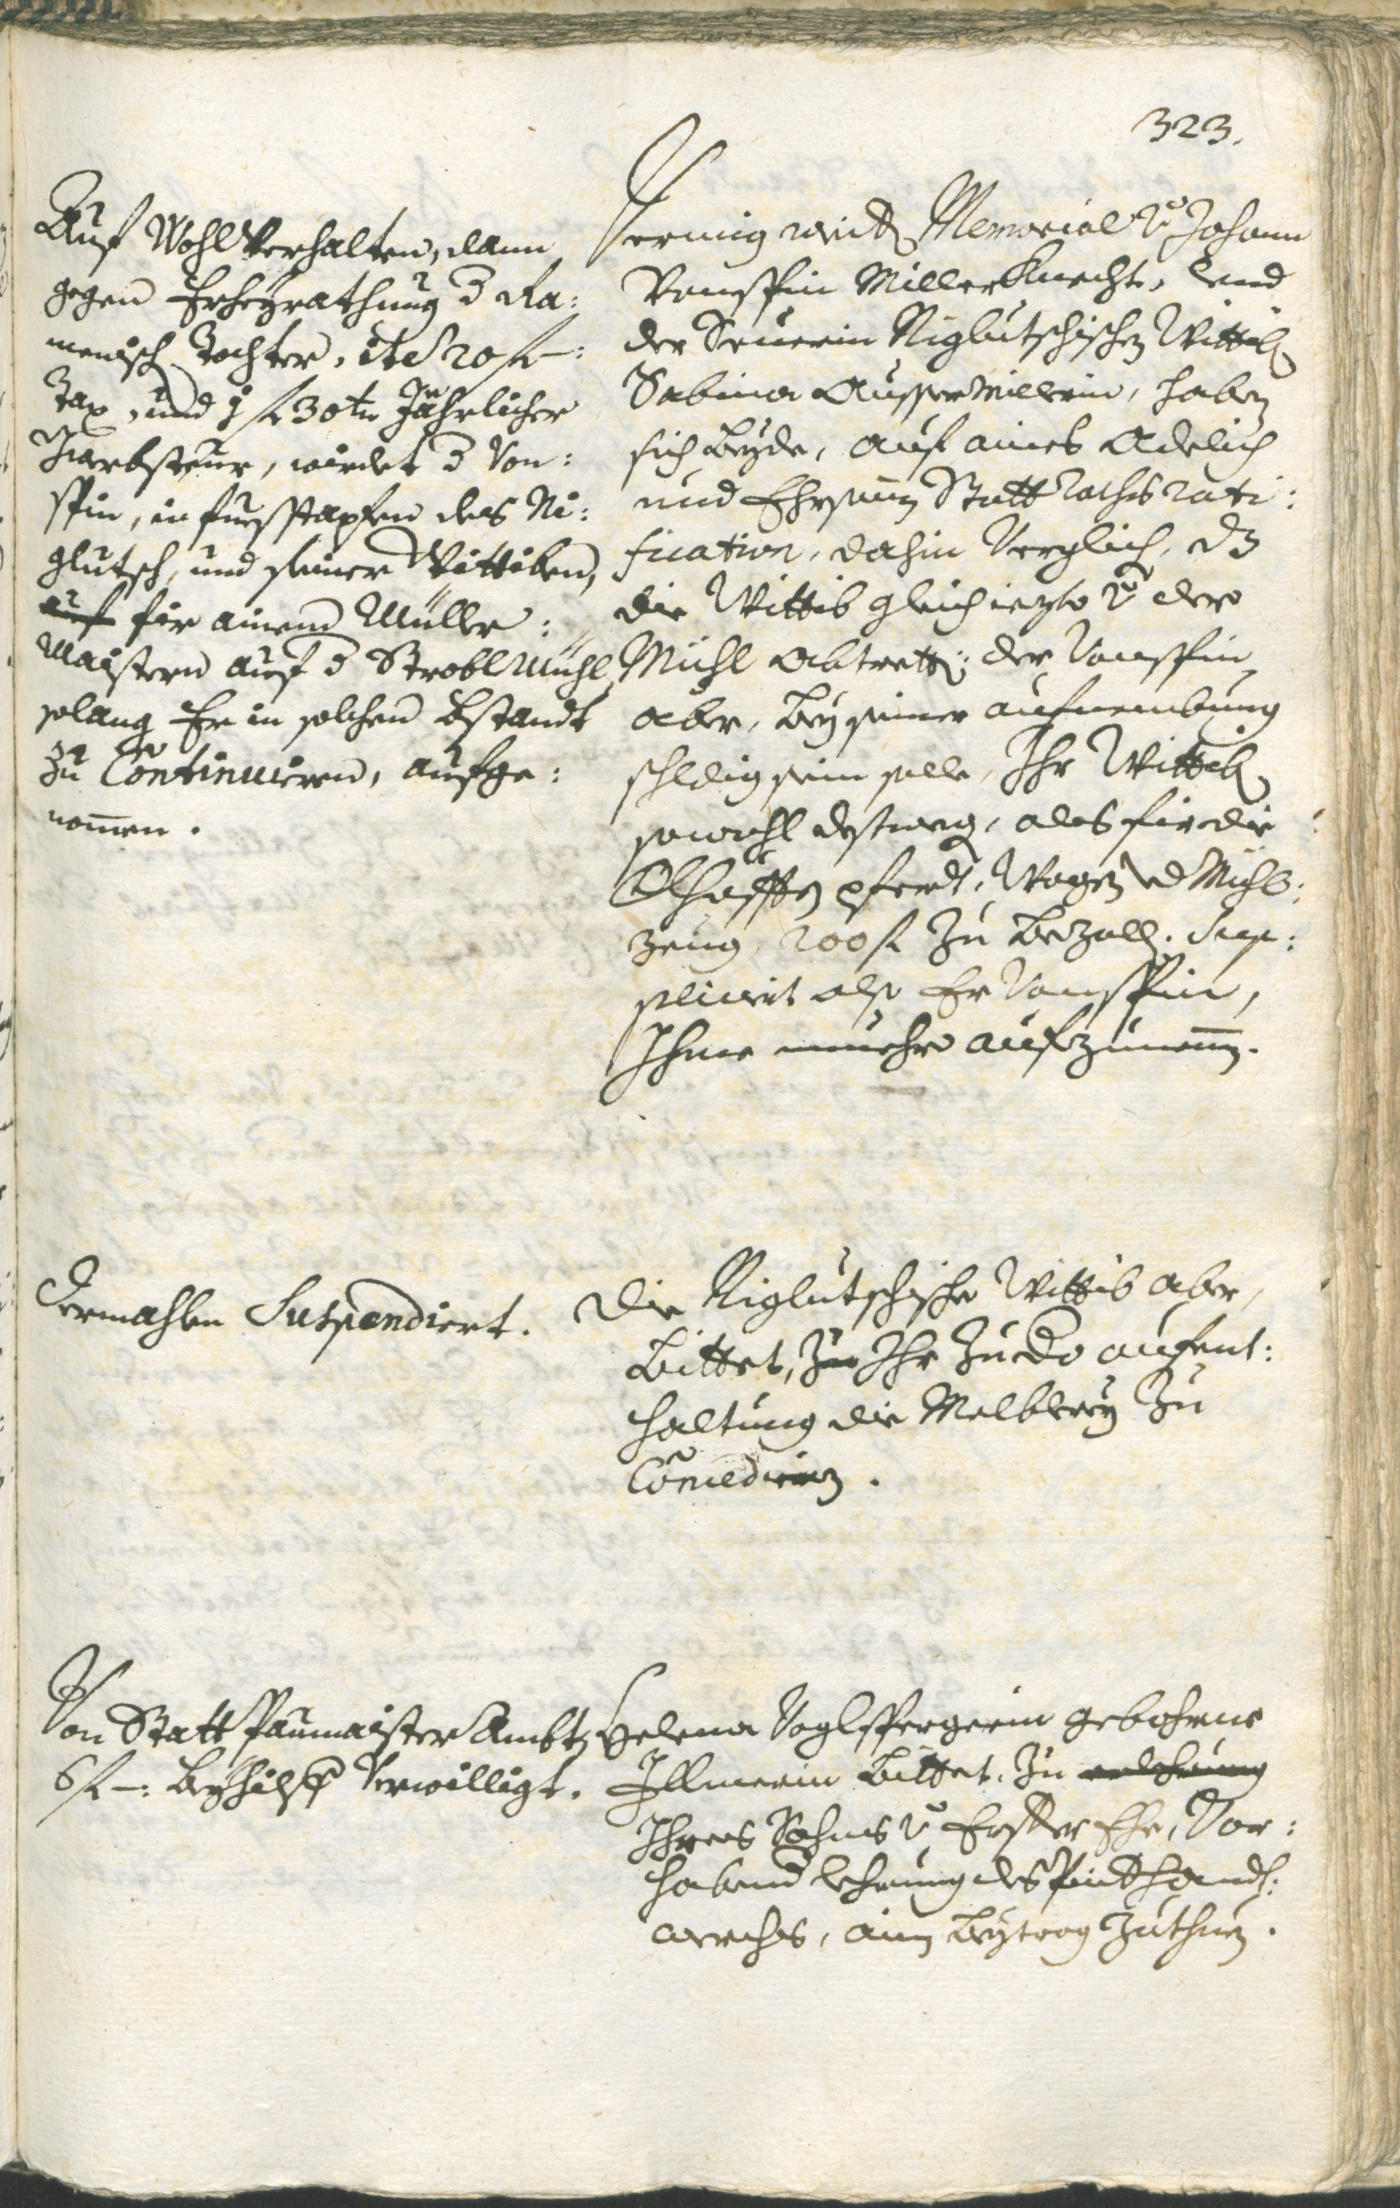 323.
Auf Wohl Verhalten, dann
gegen Erheyrathung d Ra:
menisch Tochter, ite 20 f —:
Tax, und 1 f 30 kr Jährlicher
Gwerbsteur, wirdet d Von:
stin, in fuesstapfen des Ni:
glutsch, und seiner Wittiben,
auf für ainen Müller:
Maistern auf d Strobl Mühl,
solang Er in solchen bstandt
zu Continuiren, aufge:
nomen.
Vermig wider Memorial v Johann
Vonstin Müllerknecht, und
der Niglutschischen Wittib
Sabina Aussermillerin, haben
sich beyde, auf aines Adelich
und Ehrsamen Statt Raths rati:
fication, dahin Verglich, dz
die Wittib gleich iezto v der
Mühl abtretten: der Vonstin
aber, bey seiner aufnembung
schldig sein solle, Ihr Wittib
sowohl destweg, als für die
pferdt, Wagen vnd Mühl:
zeug, 200 f zu bezalln. Sup:
plicirt also Er Vonstin,
Ihne nunmehro aufzunemen.
Dermahlen Suspendiert.
Die Niglutschische Wittib aber,
bittet, zu Ihr zu do aufent:
haltung die Melblerey zu
Concedirn.
Von Statt Paumaister Ambt
6 f —: beyhilf Verwilligt.
Helena Voglspergerin gebohrne
Illmerin bittet, zu erlehrnung
Ihres Sohns v Erster Ehe, Vor:
habend lehrnung des Pint Handt:
werchs, ain beytrag zuthuen.